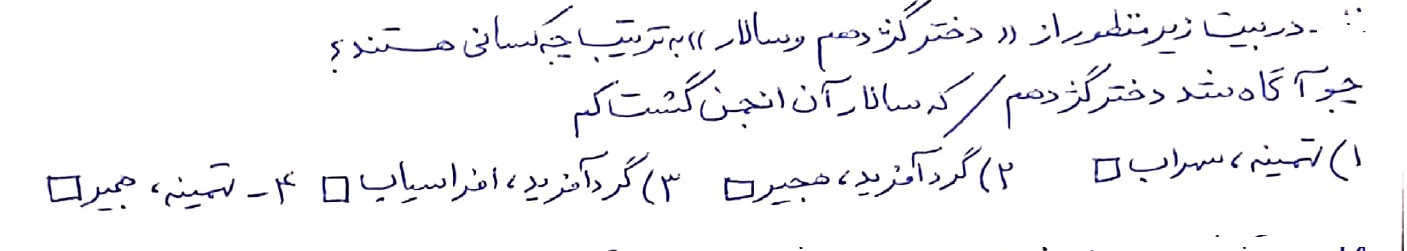 -در بیت زیر منظور از «دختر گژدهم و سالار» به ترتیب چه کسانی هستند؟
چو آگاه شد دختر گژدهم / که سالار آن انجمن گشت کم
۱) تهمینه، سهراب □ ۲) گردآفرید، هجیر □ ۳) گردآفرید، افراسیاب □ ۴- تهمینه، هجیر □